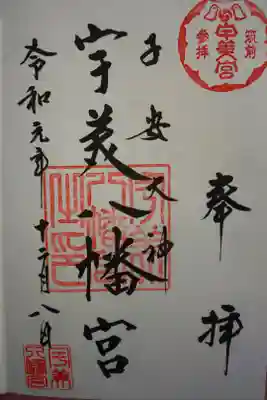 奉拝
筑前
宇美宮
参拝
子安大神
宇美八幡宮
令和元年十二月八日